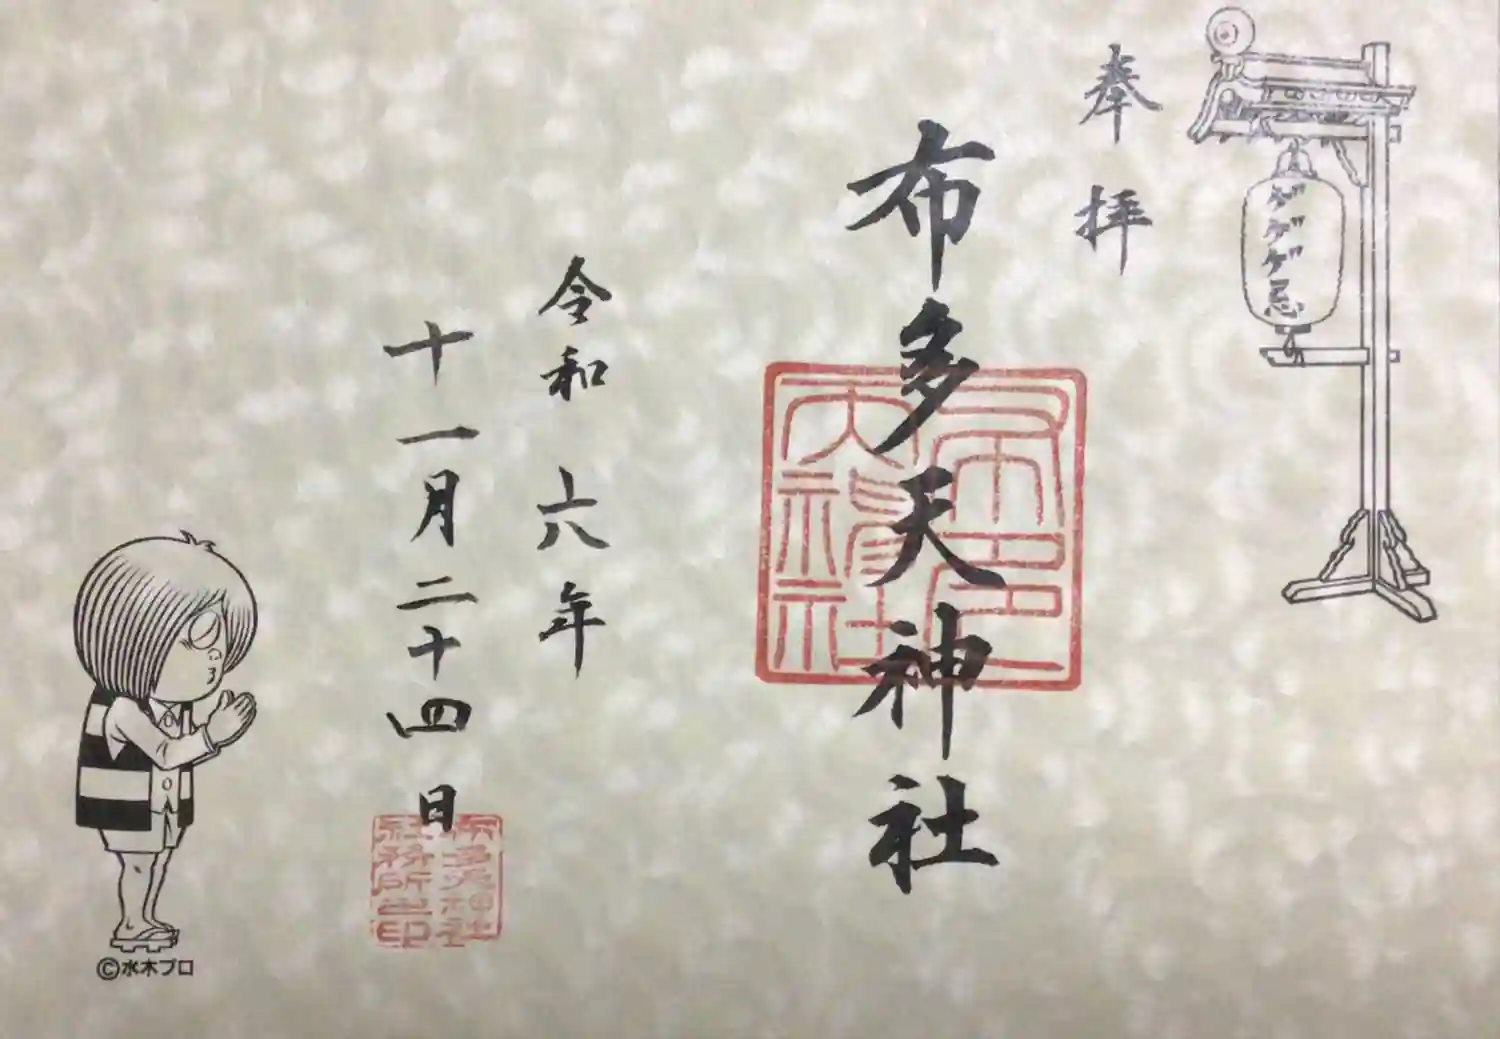 ゲゲゲ忌
奉拝
布多天神社
布多天神社
令和六年
十一月二十四日
布多天神社
社務所之印
©水木プロ